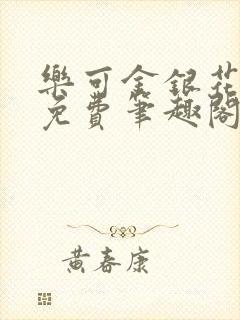 樂可金銀花
免費筆趣閣
黃春康